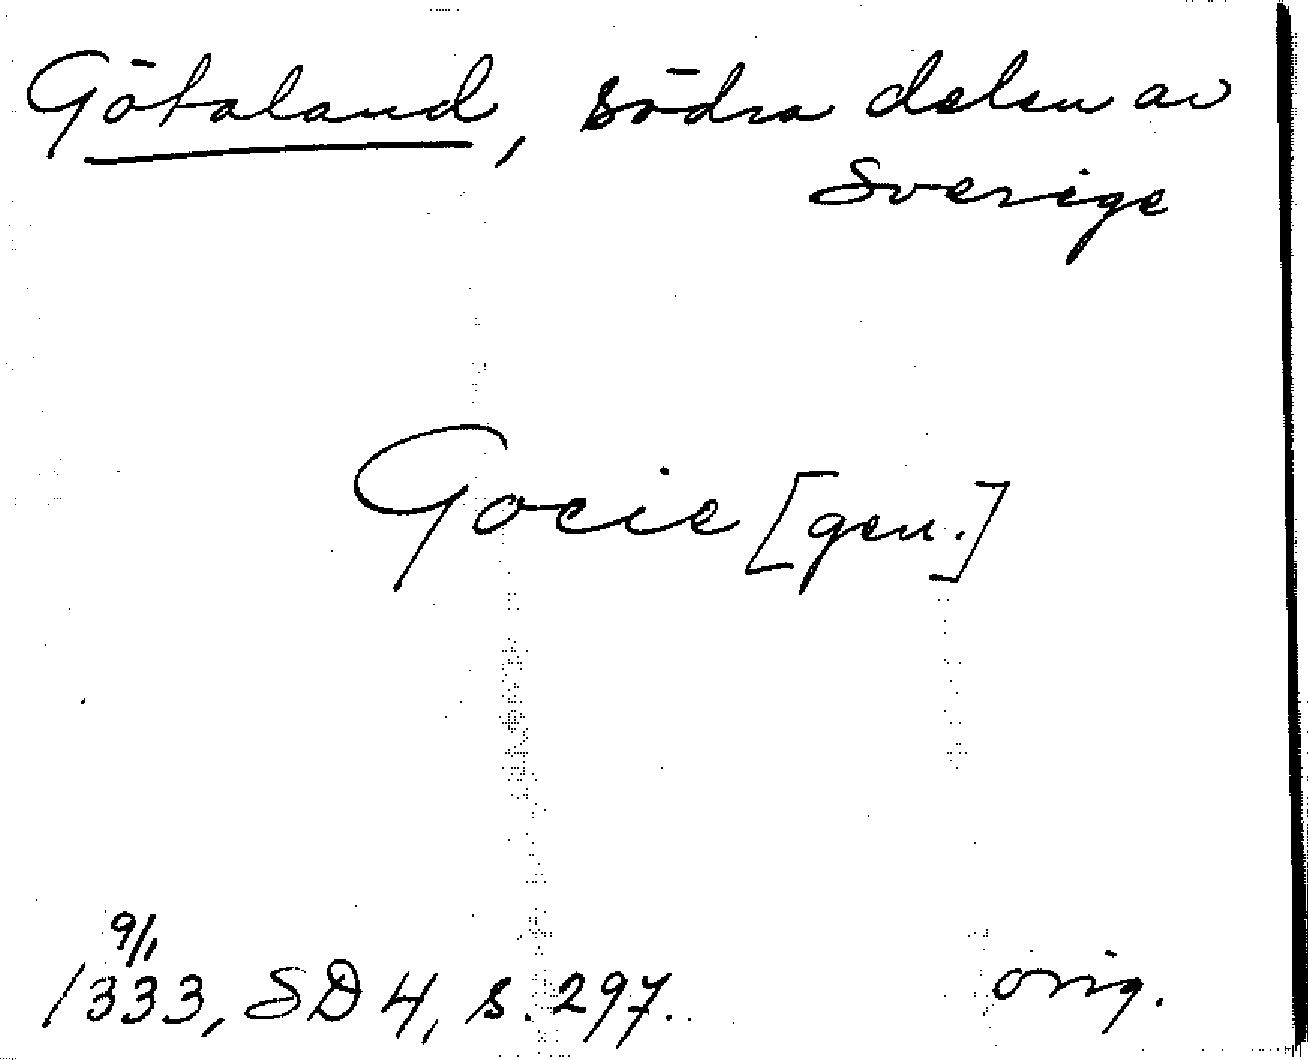 Götaland, södra delen av
Sverige
Gocie [gen.]
9/1
1333, SD 4, s. 297.
orig.